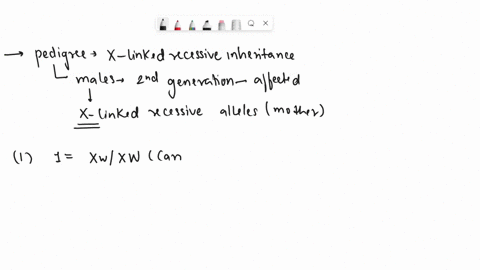 → pedigree → X-linked recessive inheritance
males → 2nd generation - affected
X-linked recessive alleles (mother)
(1) I = Xw/XW (Can